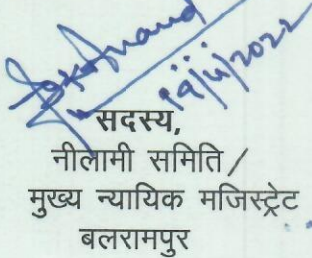 19/11/2022
सदस्य,
नीलामी समिति /
मुख्य न्यायिक मजिस्ट्रेट
बलरामपुर